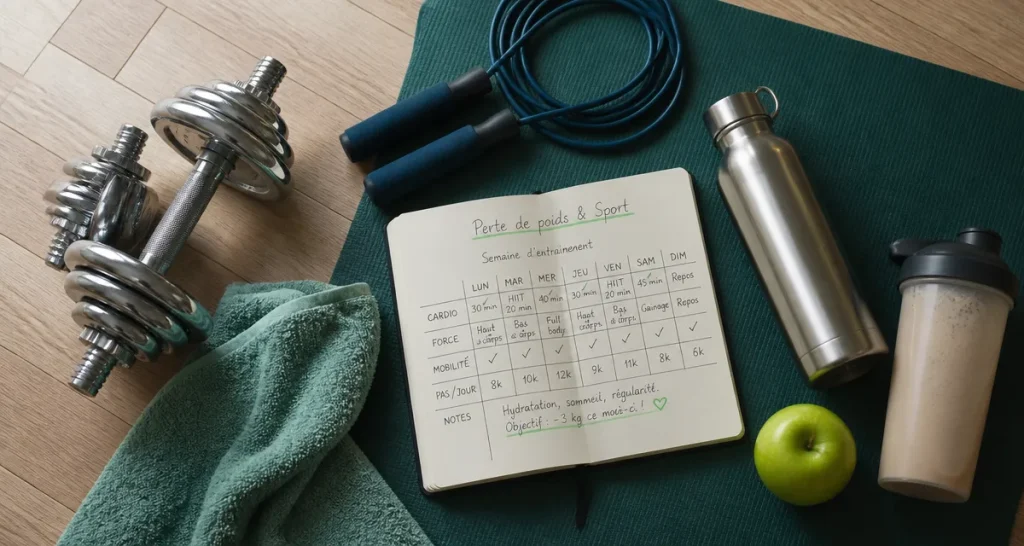 Perte de poids & Sport
Semaine d'entrainement
LUN MAR MER JEU VEN SAM DIM
CARDIO 30 min HIIT 20 min 40 min 30 min HIIT 20 min 45 min Repos
FORCE Haut corps Bas corps Full body Haut corps Bas corps Gainage Repos
MOBILITÉ ✓ ✓ ✓ ✓ ✓ ✓ ✓
PAS/JOUR 8k 10k 12k 9k 11k 8k 6k
NOTES Hydratation, sommeil, régularité.
Objectif : -3 kg ce mois-ci !